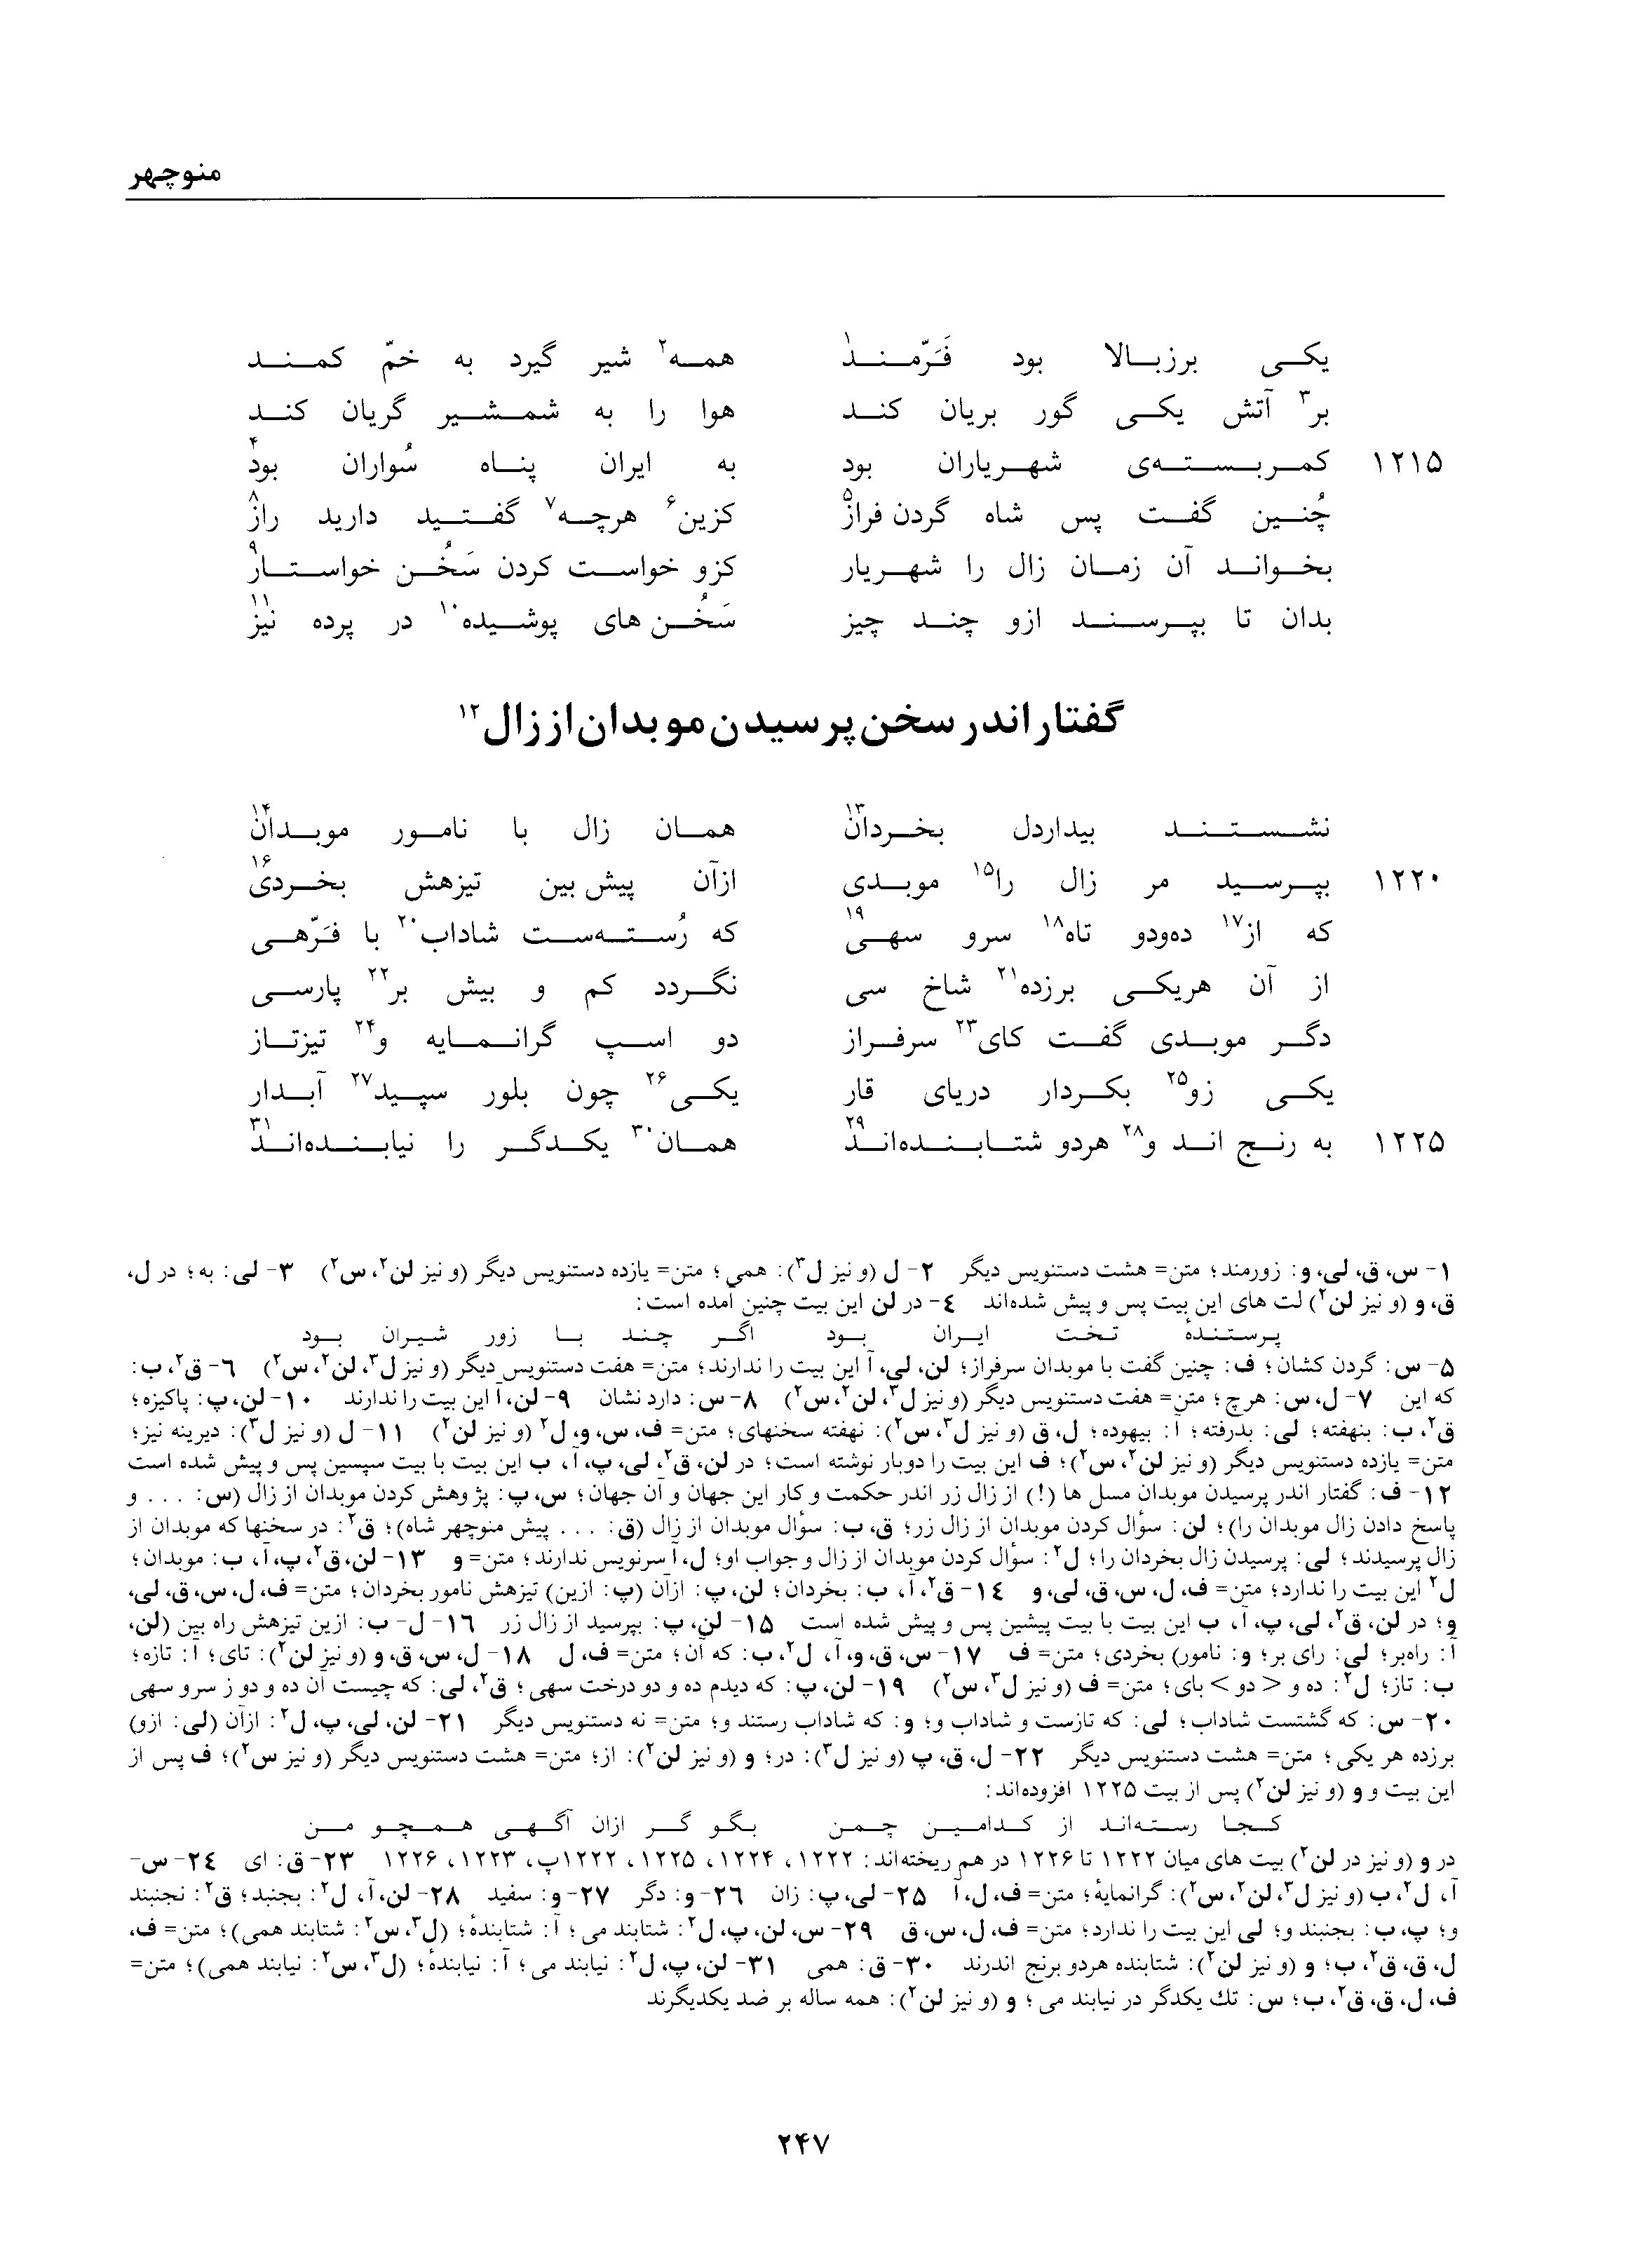 منوچهر
یکی برزبالا بود فَرّمند۱ همه۲ شیر گیرد به خمّ کمند
بر۳ آتش یکی گور بریان کند هوا را به شمشیر گریان کند
۱۲۱۵ کمربسته‌ی شهریاران بود به ایران پناه سُواران بود۴
چُنین گفت پس شاه گردن فراز۵ کزین۶ هرچه۷ گفتید دارید راز۸
بخواند آن زمان زال را شهریار کزو خواست کردن سَخُن خواستار۹
بدان تا بپرسند ازو چند چیز سَخُن های پوشیده۱۰ در پرده نیز۱۱
گفتار اندر سخن پرسیدن موبدان از زال۱۲
نشستند بیداردل بخردان۱۳ همان زال با نامور موبدان۱۴
۱۲۲۰ بپرسید مر زال را۱۵ موبدی ازآن پیش بین تیزهش بخردی۱۶
که از۱۷ ده‌ودو تاه۱۸ سرو سهی۱۹ که رُسته‌ست شاداب۲۰ با فرّهی
از آن هریکی برزده۲۱ شاخ سی نگردد کم و بیش بر۲۲ پارسی
دگر موبدی گفت کای۲۳ سرفراز دو اسپ گرانمایه و۲۴ تیزتاز
یکی زو۲۵ بکردار دریای قار یکی۲۶ چون بلور سپید۲۷ آبدار
۱۲۲۵ به رنج اند و۲۸ هردو شتابنده‌اند۲۹ همان۳۰ یکدگر را نیابنده‌اند۳۱
۱- س، ق، لی، و: زورمند؛ متن= هشت دستنویس دیگر ۲- ل (و نیز ل۳): همی؛ متن= یازده دستنویس دیگر (و نیز لن۲، س۲) ۳- لی: به؛ در ل،
ق، و (و نیز لن۲) لت های این بیت پس و پیش شده‌اند ٤- در لن این بیت چنین آمده است:
پرستندهٔ تخت ایران بود اگر چند با زور شیران بود
۵- س: گردن کشان؛ ف: چنین گفت با موبدان سرفراز؛ لن، لی، آ این بیت را ندارند؛ متن= هفت دستنویس دیگر (و نیز ل۳، لن۲، س۲) ٦- ق۲، ب:
که این ۷- ل، س: هرچ؛ متن= هفت دستنویس دیگر (و نیز ل۳، لن۲، س۲) ۸- س: دارد نشان ۹- لن، آ این بیت را ندارند ۱۰- لن، پ: پاکیزه؛
ق۲، ب: بنهفته؛ لی: بدرفته؛ آ: بیهوده؛ ل، ق (و نیز ل۳، س۲): نهفته سخنهای؛ متن= ف، س، و، ل۲ (و نیز لن۲) ۱۱- ل (و نیز ل۳): دیرینه نیز؛
متن= یازده دستنویس دیگر (و نیز لن۲، س۲)؛ ف این بیت را دوبار نوشته است؛ در لن، ق۲، لی، پ، آ، ب این بیت با بیت سپسین پس و پیش شده است
۱۲- ف: گفتار اندر پرسیدن موبدان مسل ها (!) از زال زر اندر حکمت و کار این جهان و آن جهان؛ س، پ: پژوهش کردن موبدان از زال (س: . . . و
پاسخ دادن زال موبدان را)؛ لن: سؤال کردن موبدان از زال زر؛ ق، ب: سؤال موبدان از زال (ق: . . . پیش منوچهر شاه)؛ ق۲: در سخنها که موبدان از
زال پرسیدند؛ لی: پرسیدن زال بخردان را؛ ل۲: سؤال کردن موبدان از زال و جواب او؛ ل، آ سرنویس ندارند؛ متن= و ۱۳- لن، ق۲، پ، آ، ب: موبدان؛
ل۲ این بیت را ندارد؛ متن= ف، ل، س، ق، لی، و ١٤- ق۲، آ، ب: بخردان؛ لن، پ: ازآن (پ: ازین) تیزهش نامور بخردان؛ متن= ف، ل، س، ق، لی،
و؛ در لن، ق۲، لی، پ، آ، ب این بیت با بیت پیشین پس و پیش شده است ۱۵- لن، پ: بپرسید از زال زر ١٦- ل- ب: ازین تیزهش راه بین (لن،
آ: راه‌بر؛ لی: رای بر؛ و: نامور) بخردی؛ متن= ف ۱۷- س، ق، و، آ، ل۲، ب: که آن؛ متن= ف، ل ۱۸- ل، س، ق، و (و نیز لن۲): تای؛ آ: تازه؛
ب: تاز؛ ل۲: ده و <دو> بای؛ متن= ف (و نیز ل۳، س۲) ۱۹- لن، پ: که دیدم ده و دو درخت سهی؛ ق۲، لی: که چیست آن ده و دو ز سرو سهی
۲۰- س: که گشتست شاداب؛ لی: که تازست و شاداب و؛ و: که شاداب رستند و؛ متن= نه دستنویس دیگر ۲۱- لن، لی، پ، ل۲: ازآن (لی: ازو)
برزده هر یکی؛ متن= هشت دستنویس دیگر ۲۲- ل، ق، پ (و نیز ل۳): در؛ و (و نیز لن۲): از؛ متن= هشت دستنویس دیگر (و نیز س۲)؛ ف پس از
این بیت و و (و نیز لن۲) پس از بیت ۱۲۲۵ افزوده‌اند:
کجا رسته‌اند از کدامین چمن بگو گر ازان آگهی همچو من
در و (و نیز در لن۲) بیت های میان ۱۲۲۲ تا ۱۲۲۶ در هم ریخته‌اند: ۱۲۲۲، ۱۲۲۴، ۱۲۲۵، ۱۲۲۲پ، ۱۲۲۳، ۱۲۲۶ ۲۳- ق: ای ٢٤- س-
آ، ل۲، ب (و نیز ل۳، لن۲، س۲): گرانمایهٔ؛ متن= ف، ل، آ ۲۵- لی، پ: زان ٢٦- و: دگر ۲۷- و: سفید ۲۸- لن، آ، ل۲: بجنبد؛ ق۲: نجنبند
و؛ پ، ب: بجنبند و؛ لی این بیت را ندارد؛ متن= ف، ل، س، ق ۲۹- س، لن، پ، ل۲: شتابند می؛ آ: شتابندهٔ؛ (ل۳، س۲: شتابند همی)؛ متن= ف،
ل، ق، ق۲، ب؛ و (و نیز لن۲): شتابنده هردو برنج اندرند ۳۰- ق: همی ۳۱- لن، پ، ل۲: نیابند می؛ آ: نیابندهٔ؛ (ل۳، س۲: نیابند همی)؛ متن=
ف، ل، ق، ق۲، ب؛ س: تك یکدگر در نیابند می؛ و (و نیز لن۲): همه ساله بر ضد یکدیگرند
۲۴۷